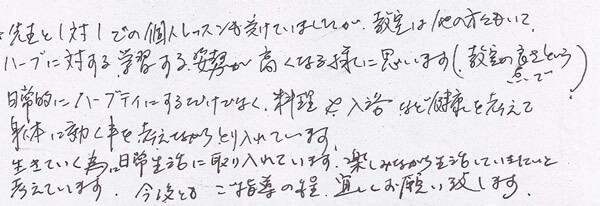 ・先生と1対1での個人レッスンも受けていましたが、教室は他の方もいて、
ハーブに対する、学習する姿勢が高くなる様に思います(教室の良さという点で)
日常的にハーブティにするだけでなく、料理や入浴など健康を考えて
身体に効く事を考えながらとり入れています。
生きていく為、日常生活に取り入れています。楽しみながら生活していきたいと
考えています。今後ともご指導の程、宜しくお願い致します。